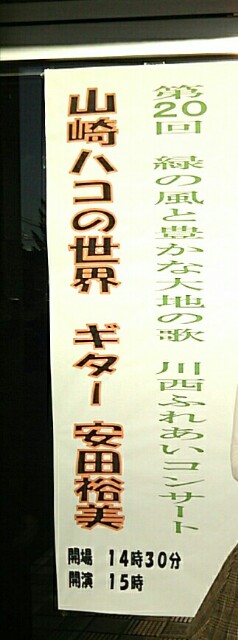 第20回 緑の風と豊かな大地の歌 川西ふれあいコンサート
山崎ハコの世界 ギター 安田裕美
開場 14時30分
開演 15時